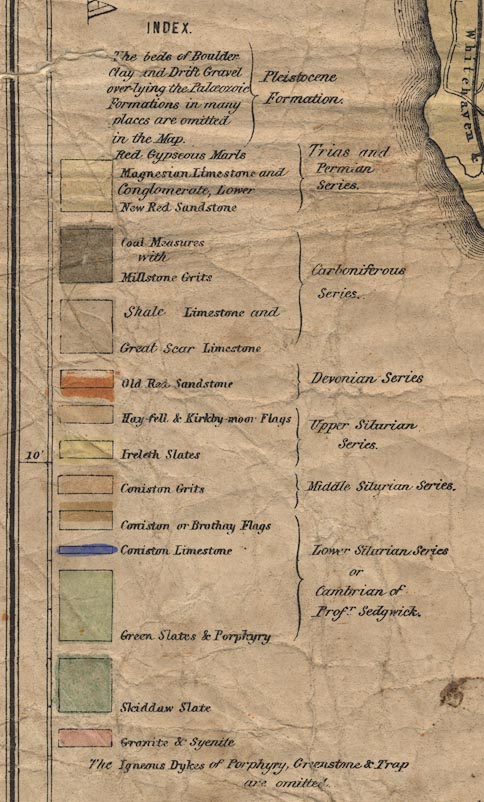 INDEX.
The beds of Boulder
Clay and Drift Gravel
overlying the Palæozoic
Formations in many
places are omitted
in the Map.
Pleistocene
Formation.
Red Gypseous Marls
Magnesian Limestone and
Conglomerate, Lower
New Red Sandstone
Trias and
Permian
Series.
Coal Measures
with
Millstone Grits
Shale Limestone and
Great Scar Limestone
Carboniferous
Series.
Old Red Sandstone
Devonian Series
Hay-fell & Kirkby-moor Flags
Ireleth Slates
Upper Silurian
Series.
10'
Coniston Grits
Middle Silurian Series.
Coniston or Brathay Flags
Coniston Limestone
Green Slates & Porphyry
Lower Silurian Series
or
Cambrian of
Profr. Sedgwick.
Skiddaw Slate
Granite & Syenite
The Igneous Dykes of Porphyry, Greenstone & Trap
are omitted.
Whitehaven &